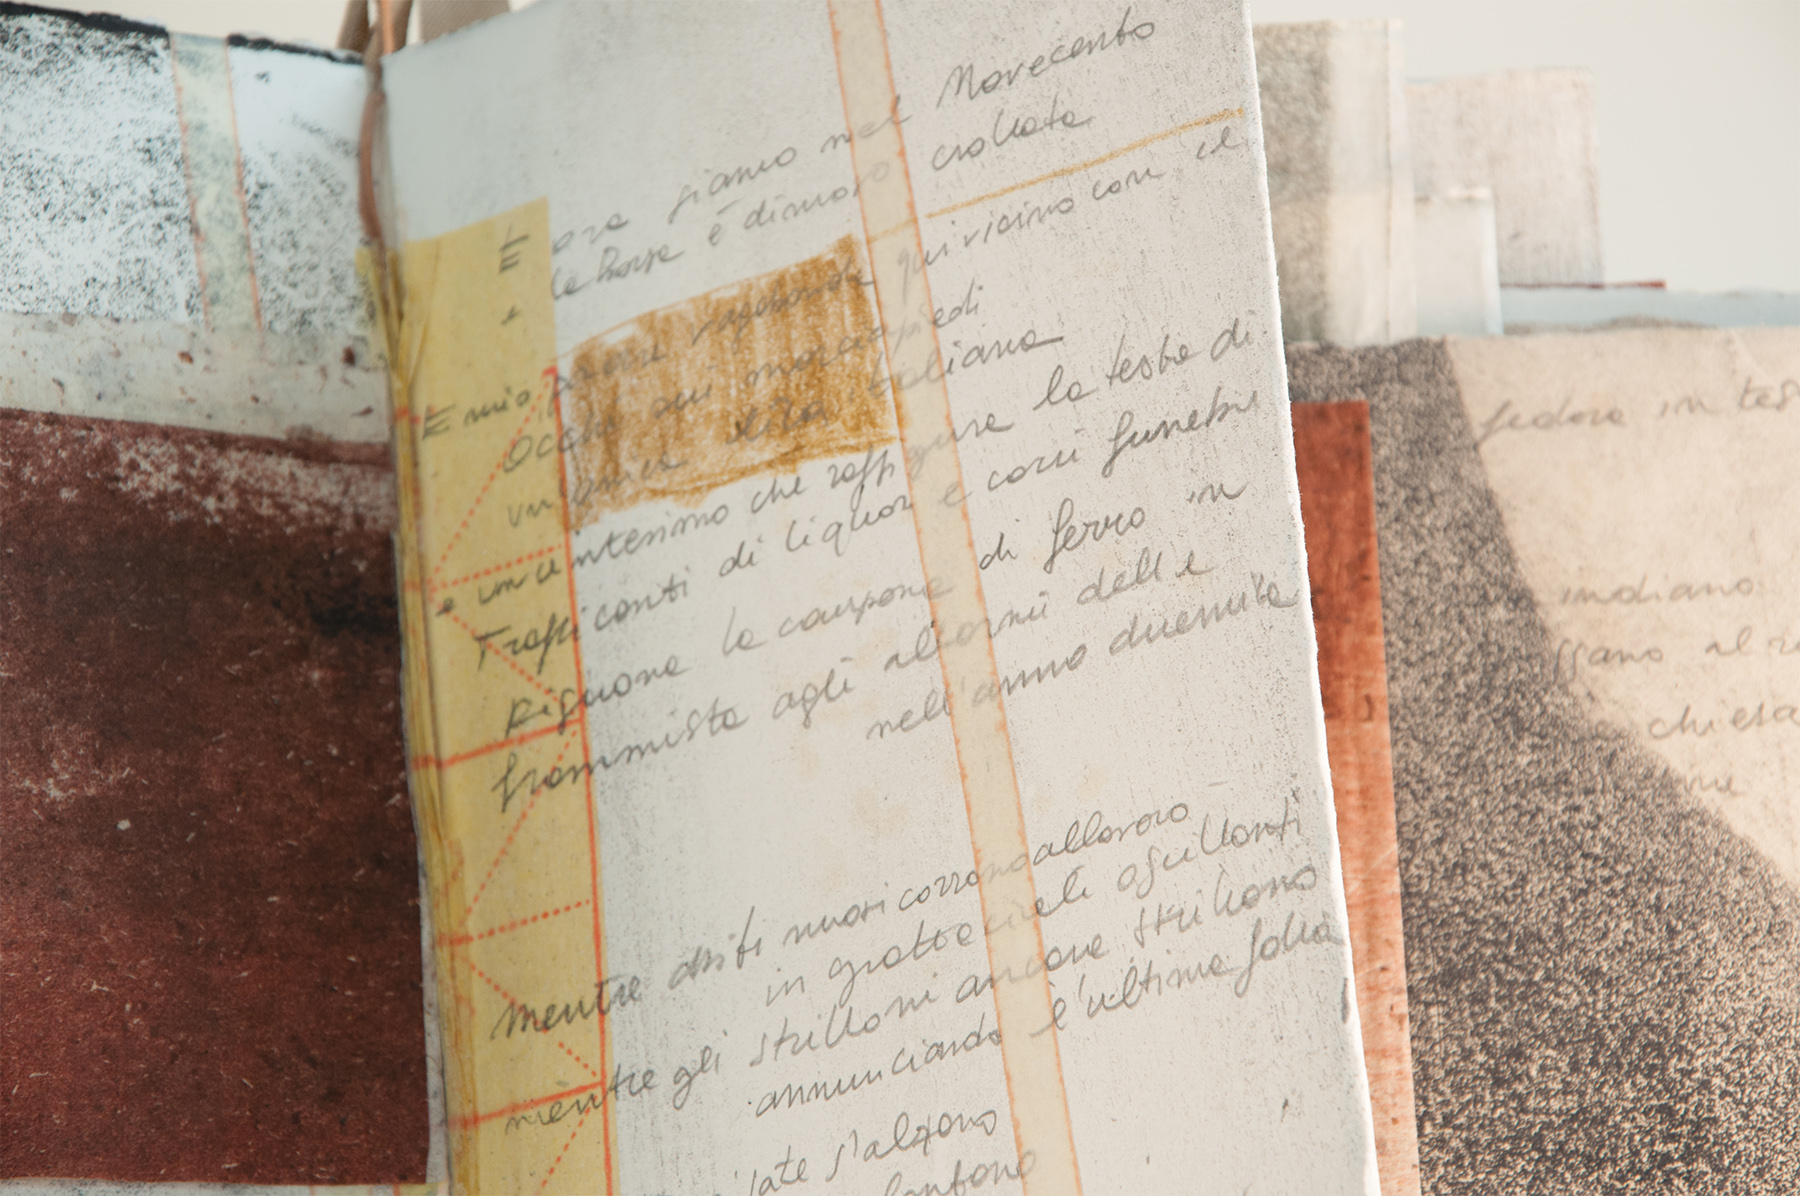 E ora siamo nel Novecento
e la borsa è di nuovo crollata
E mio padre ragazzo di qui vicino con il
occhi sui marciapiedi
un' unica lira italiana
e un centesimo che raffigura la testa di
Trafficanti di liquori e corri funebri
risuona la campana di ferro in
frammista agli allarmi delle
nell'anno duemila
mentre dritti nuovi corrono al lavoro
in grattacieli oscillanti
mentre gli strilloni ancora strillano
annunciando l'ultima follia
late s'alzano
fedora in tes
indiano
ssano al ra
chiesa